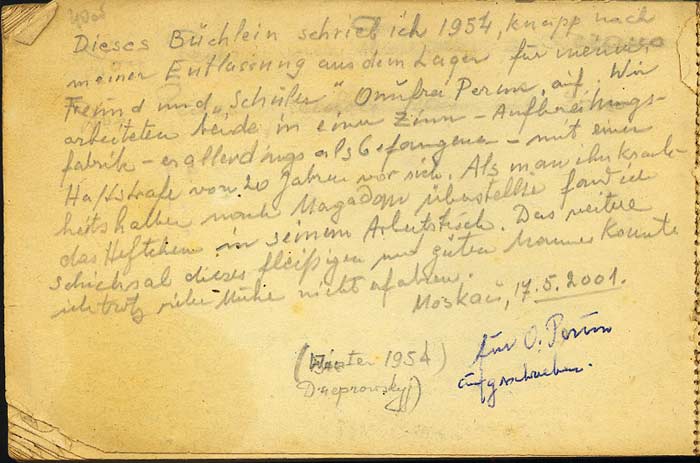 Dieses Büchlein schrieb ich 1954, knapp nach
meiner Entlassung aus dem Lager für meinen
Freund und „Schüler“ Onufra Perun, auf. Wir
arbeiteten beide in einer Zinn-Aufbereitungs-
fabrik - er allerdings als Gefangener - mit einer
Haftstrafe von 20 Jahren vor sich. Als man ihn krank-
heitshalber nach Magadan überstellte fand ich
das Heftchen in seinem Arbeitstisch. Das weitere
Schicksal dieses fleißigen und guten Mannes konnte
ich trotz vieler Mühe nicht erfahren.
Moskau, 17.5.2001.
für O. Perun
aufgeschrieben.
(Winter 1954)
Dneprowskyj)